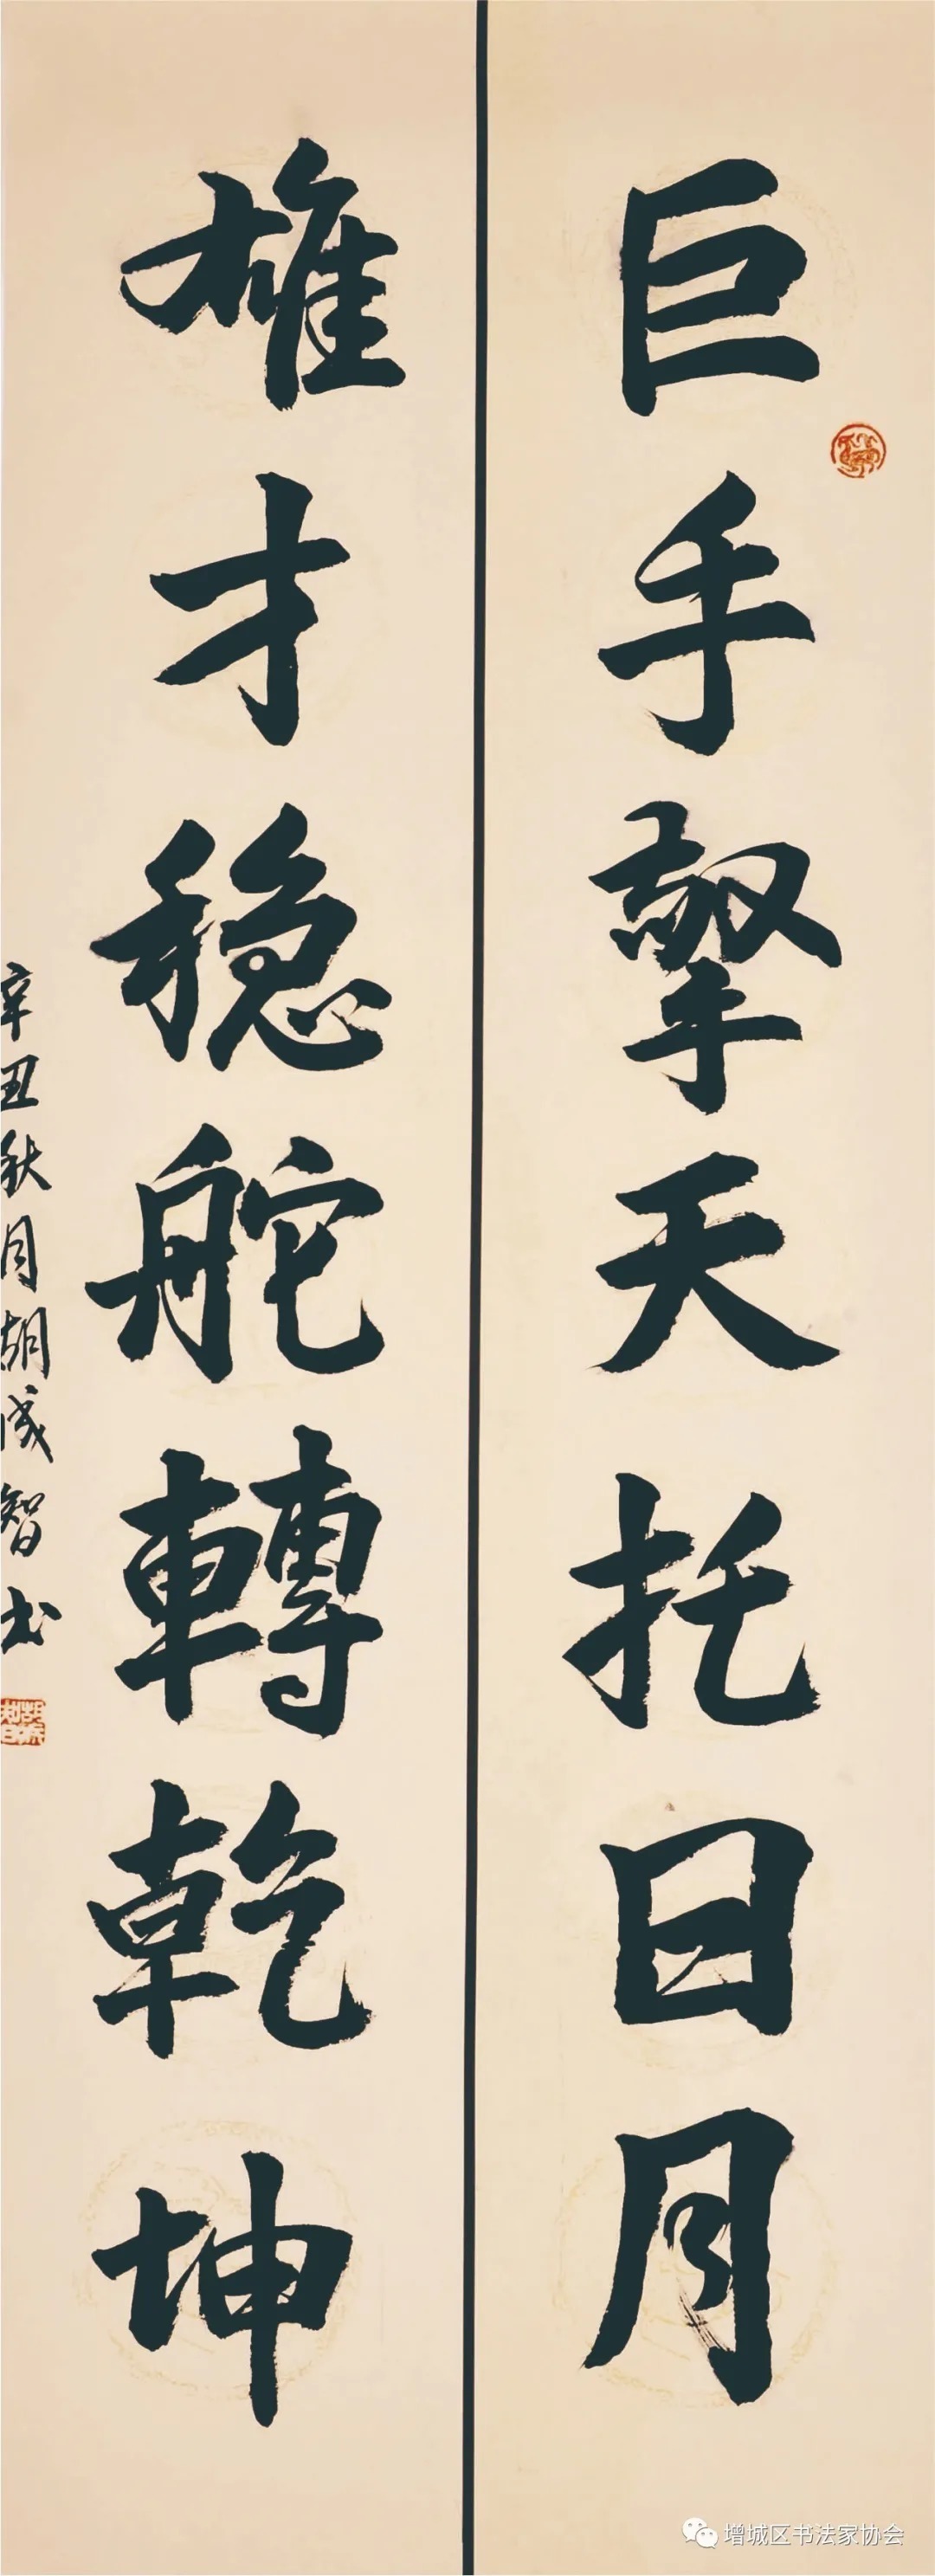 巨手擎天托日月
雄才稳舵轉乾坤
辛丑秋月胡成智书
增城区书法家协会